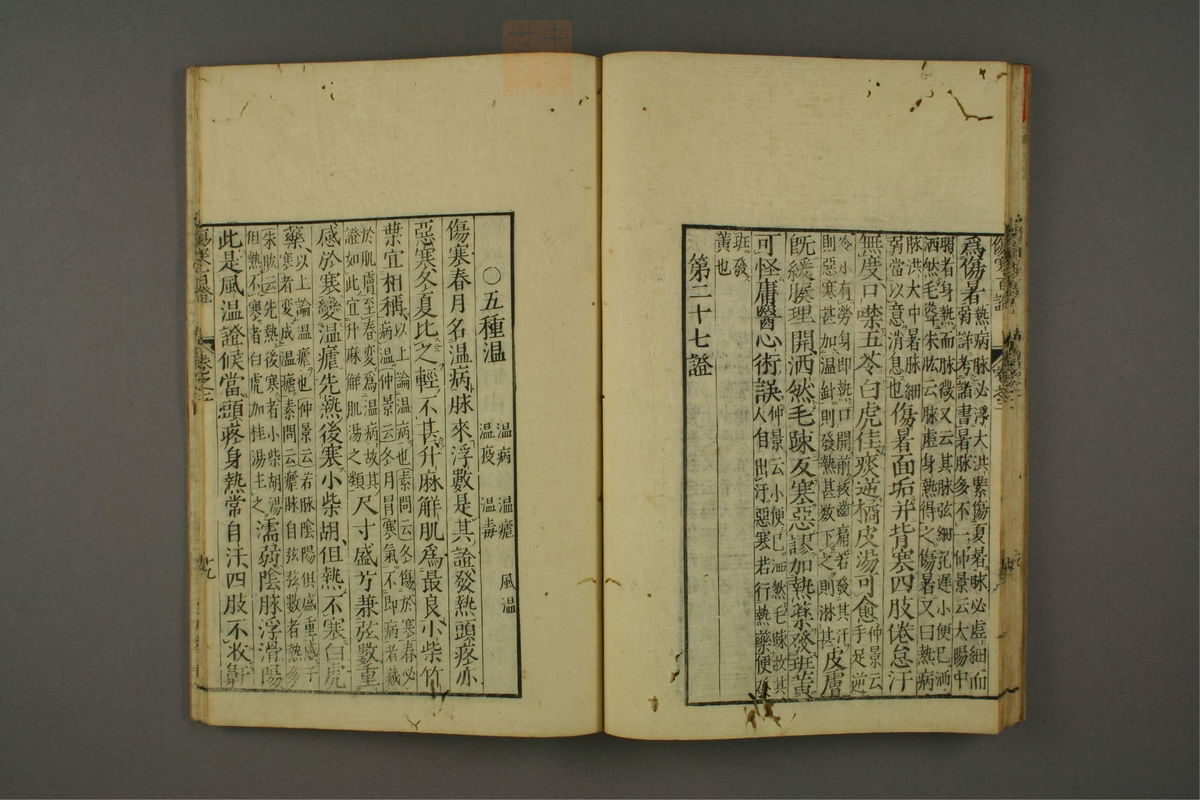 傷寒百證
爲傷暑熱病脉必浮大洪緊傷夏暑脉必虛細而
弱詳考諸書暑脉多不一仲景云太陽中
暍者身熱而脉微又云其脉弦細芤遲小便已洒
洒然毛聳朱肱云脉虛身熱得之傷暑又曰熱病
脉洪大中暑脉細
弱當以意消息也傷暑面垢并背寒四肢倦怠汗
無度口噤五苓白虎佳痰逆橘皮湯可愈仲景云
手足逆
冷小有勞身即熱口開前板齒痛若發其汗
則惡寒甚加温針則發熱甚數下之則淋甚皮膚
既緩腠理開洒然毛竦及寒惡謬加熱藥發斑黄
可怪庸醫心術誤仲景云小便已洒然毛竦故其
人自出汗惡寒若行熱藥便發
斑發
黄也
第二十七證
○五種温
温病 温瘧 風温
温疫 温毒
傷寒春月名温病脉來浮數是其證發熱頭疼亦
惡寒冬夏比之輕不甚升麻解肌爲最良小柴竹
葉宜相稱以上論温病也素問云冬傷於寒春必
病温仲景云冬月冒寒氣不即病者藏
於肌膚至春變爲温病故其
證如此宜升麻解肌湯之類尺寸盛方兼弦數重
感於寒變温瘧先熱後寒小柴胡但熱不寒白虎
藥以上論温瘧也仲景云若脉陰陽俱盛重感于
寒者變成温瘧素問云瘧脉自弦弦數者熱多
朱肱云先熱後寒者小柴胡湯
但熱不寒者白虎加桂湯主之濡弱陰脉浮滑陽
此是風温證候當頭疼身熱常自汗四肢不收鼾
傷寒百證
卷之二